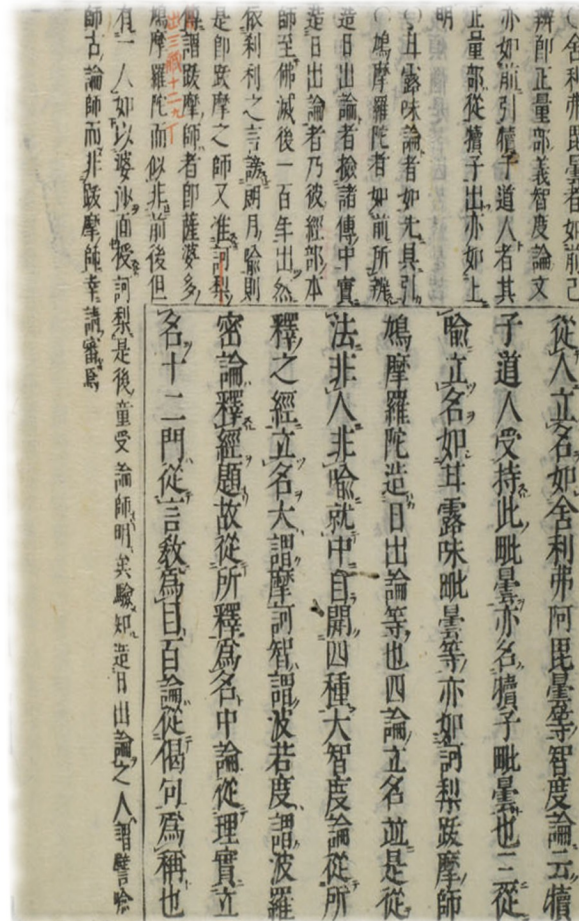 ○舍利弗毘曇者如前已
辨即正量部義智度論文
亦如前引犢子道人者其
正量部從犢子出亦如上
明
○甘露味論者如先具引
○鳩摩羅陀者如前所辨
造日出論者檢諸傳中實
造日出論者乃彼經部本
師至佛滅後一百年出然
依利利之言譏朗月喻則
是即跋摩之師又准訶梨
傳謂跋摩師者即薩婆多
鳩摩羅陀而似非前後但
有一人如以婆沙面授訶梨是後童受論師明矣驗知造日出論之人謂譬喻
師古論師而非跋摩師幸請審焉
出三藏十二九丁
從人立名如舍利弗阿毘曇等智度論云犢
子道人受持此毗曇亦名犢子毗曇也三從
喻立名如甘露味毗曇等亦如訶梨跋摩師
鳩摩羅陀造日出論等也四論立名並是從
法非人非喻就中自開四種大智度論從所
釋之經立名大謂摩訶智謂波若度謂波羅
密論釋經題故從所釋為名中論從理實立
名十二門從言教為目百論從偈句為稱也